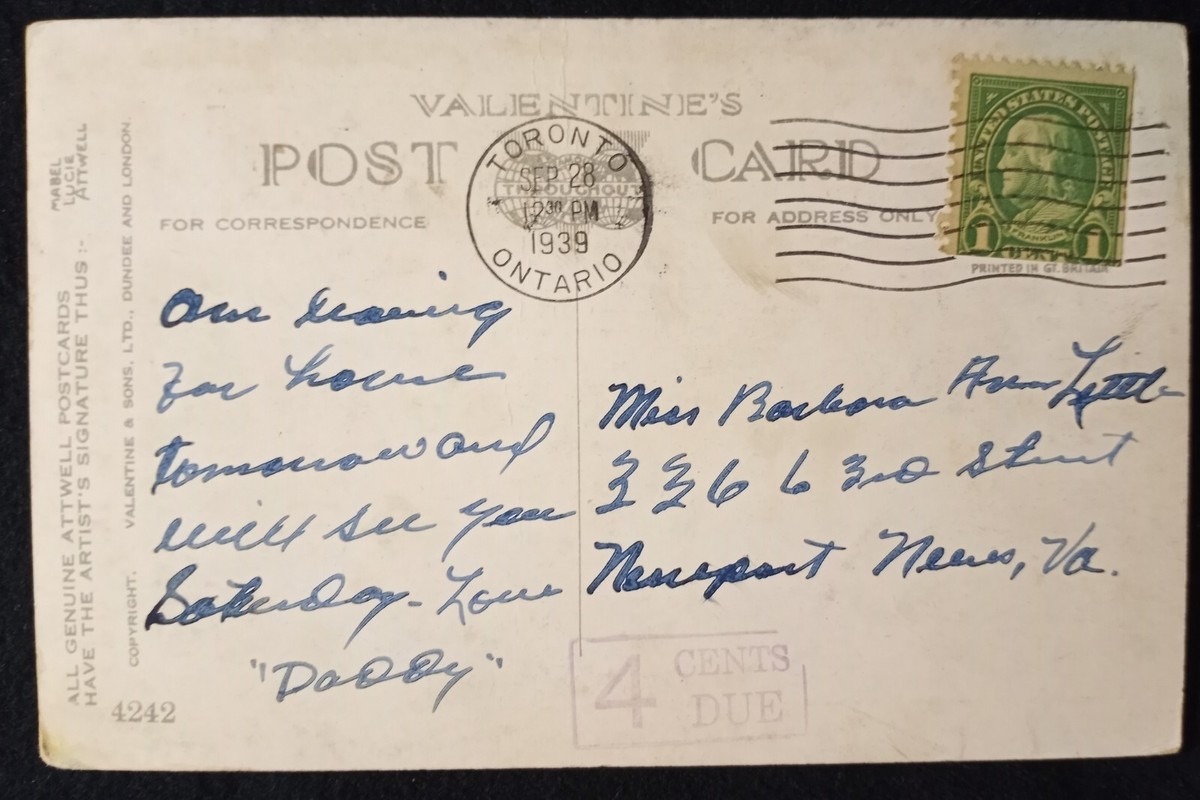 VALENTINE'S
POST CARD
FOR CORRESPONDENCE
FOR ADDRESS ONLY
TORONTO
SEP 28
12 30 PM
1939
ONTARIO
THROUGHOUT
UNITED STATES POSTAGE
FRANKLIN
1 CENT 1
PRINTED IN GT. BRITAIN
ALL GENUINE ATTWELL POSTCARDS
HAVE THE ARTIST'S SIGNATURE THUS :-
MABEL
LUCIE
ATTWELL
COPYRIGHT. VALENTINE & SONS, LTD., DUNDEE AND LONDON.
4242
Am leaving
for home
tomorrow and
will see you
Saturday - Love
"Daddy"
Miss Barbara Ann Little
336 63rd Street
Newport News, Va.
4 CENTS
DUE